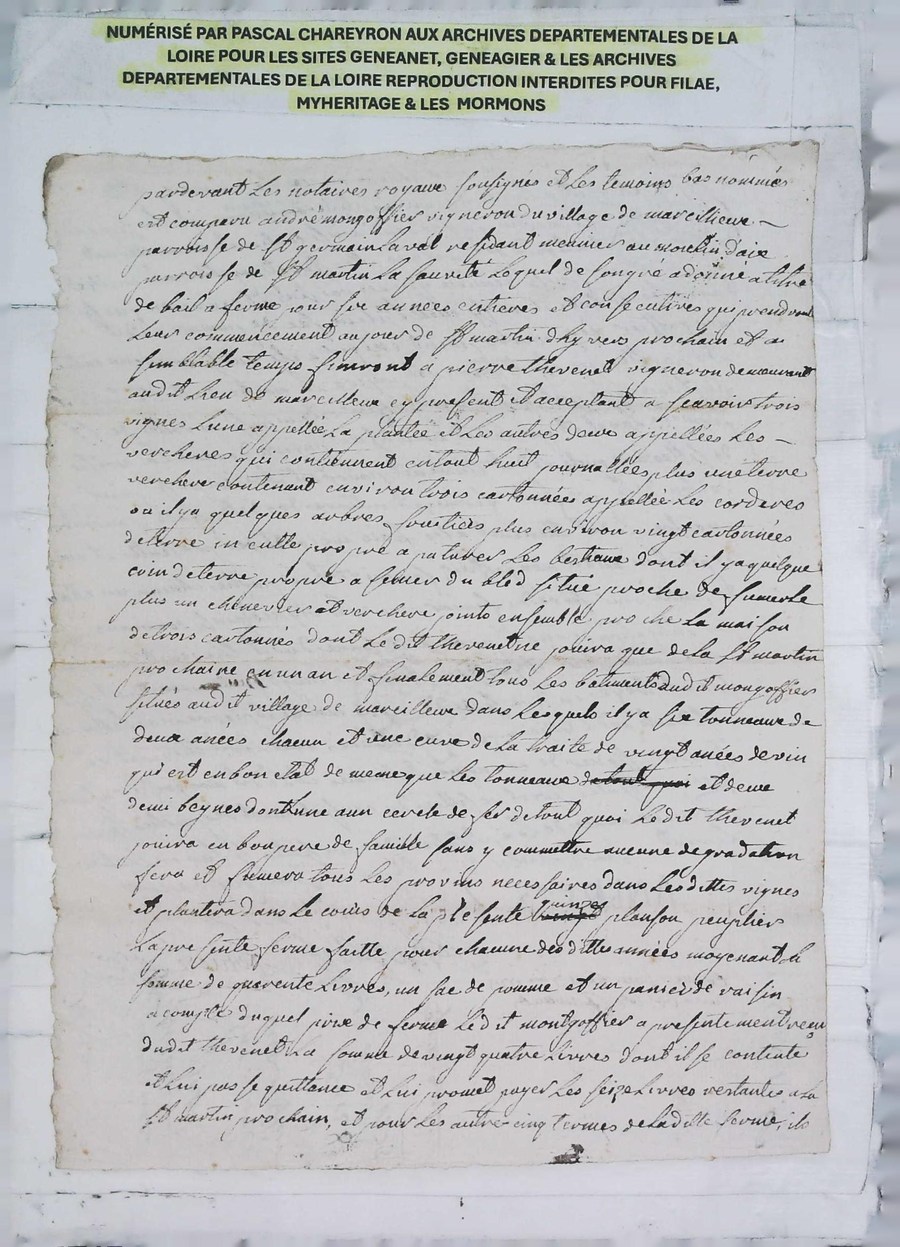 NUMÉRISÉ PAR PASCAL CHAREYRON AUX ARCHIVES DEPARTEMENTALES DE LA
LOIRE POUR LES SITES GENEANET, GENEAGIER & LES ARCHIVES
DEPARTEMENTALES DE LA LOIRE REPRODUCTION INTERDITES POUR FILAE,
MYHERITAGE & LES MORMONS
pardevant Les notaires royaux soussignes et Les temoins bas nommés
est comparu andré mongoffier vigneron du village de marcillieux
parroisse de St germain Laval residant meunier au moulin d'aix
parroisse de St martin La sauveté Lequel de son gré a donné a titre
de bail a ferme pour six années entieres et consecutives qui prendront
Leur commencement au jour de St martin d'hyvers prochain et a
semblable temps finiront a pierre thevenet vigneron demeurant
audit Lieu de marcilleux cy present et acceptant a scavoir trois
vignes L'une appellée La plantée et Les autres deux appellées Les
vercheres qui contiennent en tout huit journallées, plus une terre
verchere contenant environ trois cartonnées appellée Les corderes
ou il y a quelques arbres fruitiers plus environ vingt cartonnées
de terre inculte propre a paturer Les bestiaux dont il y a quelque
coin de terre propre a semer du bled situé proche de
plus un chenevier et verchere joints ensemble proche La maison
de trois cartonnés dont Le dit thevenet ne jouira que de la St martin
prochaine en un an et finalement tous Les batiments dud it mongoffier
situés audit village de marcilleux dans Lesquels il y a six tonneaux de
deux anées chacun et une cuve de La traite de vingt anées de vin
qui est en bon etat de meme que Les tonneaux de tout quoi et deux
demi beynes dont L'une a un cercle de fer de tout quoi Le dit thevenet
jouira en bon pere de famille sans y commettre aucune degradation
fera et fumera tous Les provins necessaires dans Lesdittes vignes
et plantera dans Le cours de La presente quinze planson peupliers
La presente ferme faitte pour chacune des dittes années moyenant La
somme de quarente Livres, un sac de pomme et un panier de raisin
a compte duquel prix de ferme Le dit montgoffier a presentement reçu
dudit thevenet La somme de vingt quatre Livres dont il se contente
et Lui passe quittance et Lui promet payer Les seize Livres restantes a La
St martin prochain, et pour Les autre cinq termes de La ditte ferme, ils